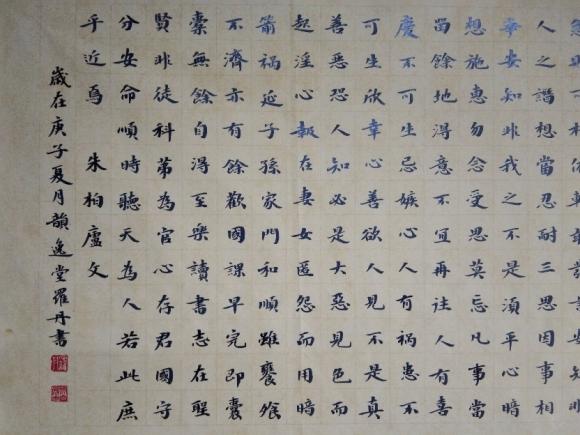 人之譖想當忍耐三思因事相
爭安知非我之不是須平心暗
想施惠勿念受思莫忘凡事當
留餘地得意不宜再往人有喜
慶不可生忌嫉心人有禍患不
可生欣幸心善欲人見不是真
善惡恐人知必是大惡見色而
起淫心報在妻女匿怨而用暗
箭禍延子孫家門和順雖饔飧
不濟亦有餘歡國課早完即囊
橐無餘自得至樂讀書志在聖
賢非徒科第為官心存君國守
分安命順時聽天為人若此庶
乎近焉 朱柏廬文
歲在庚子夏月韻逸堂羅丹書